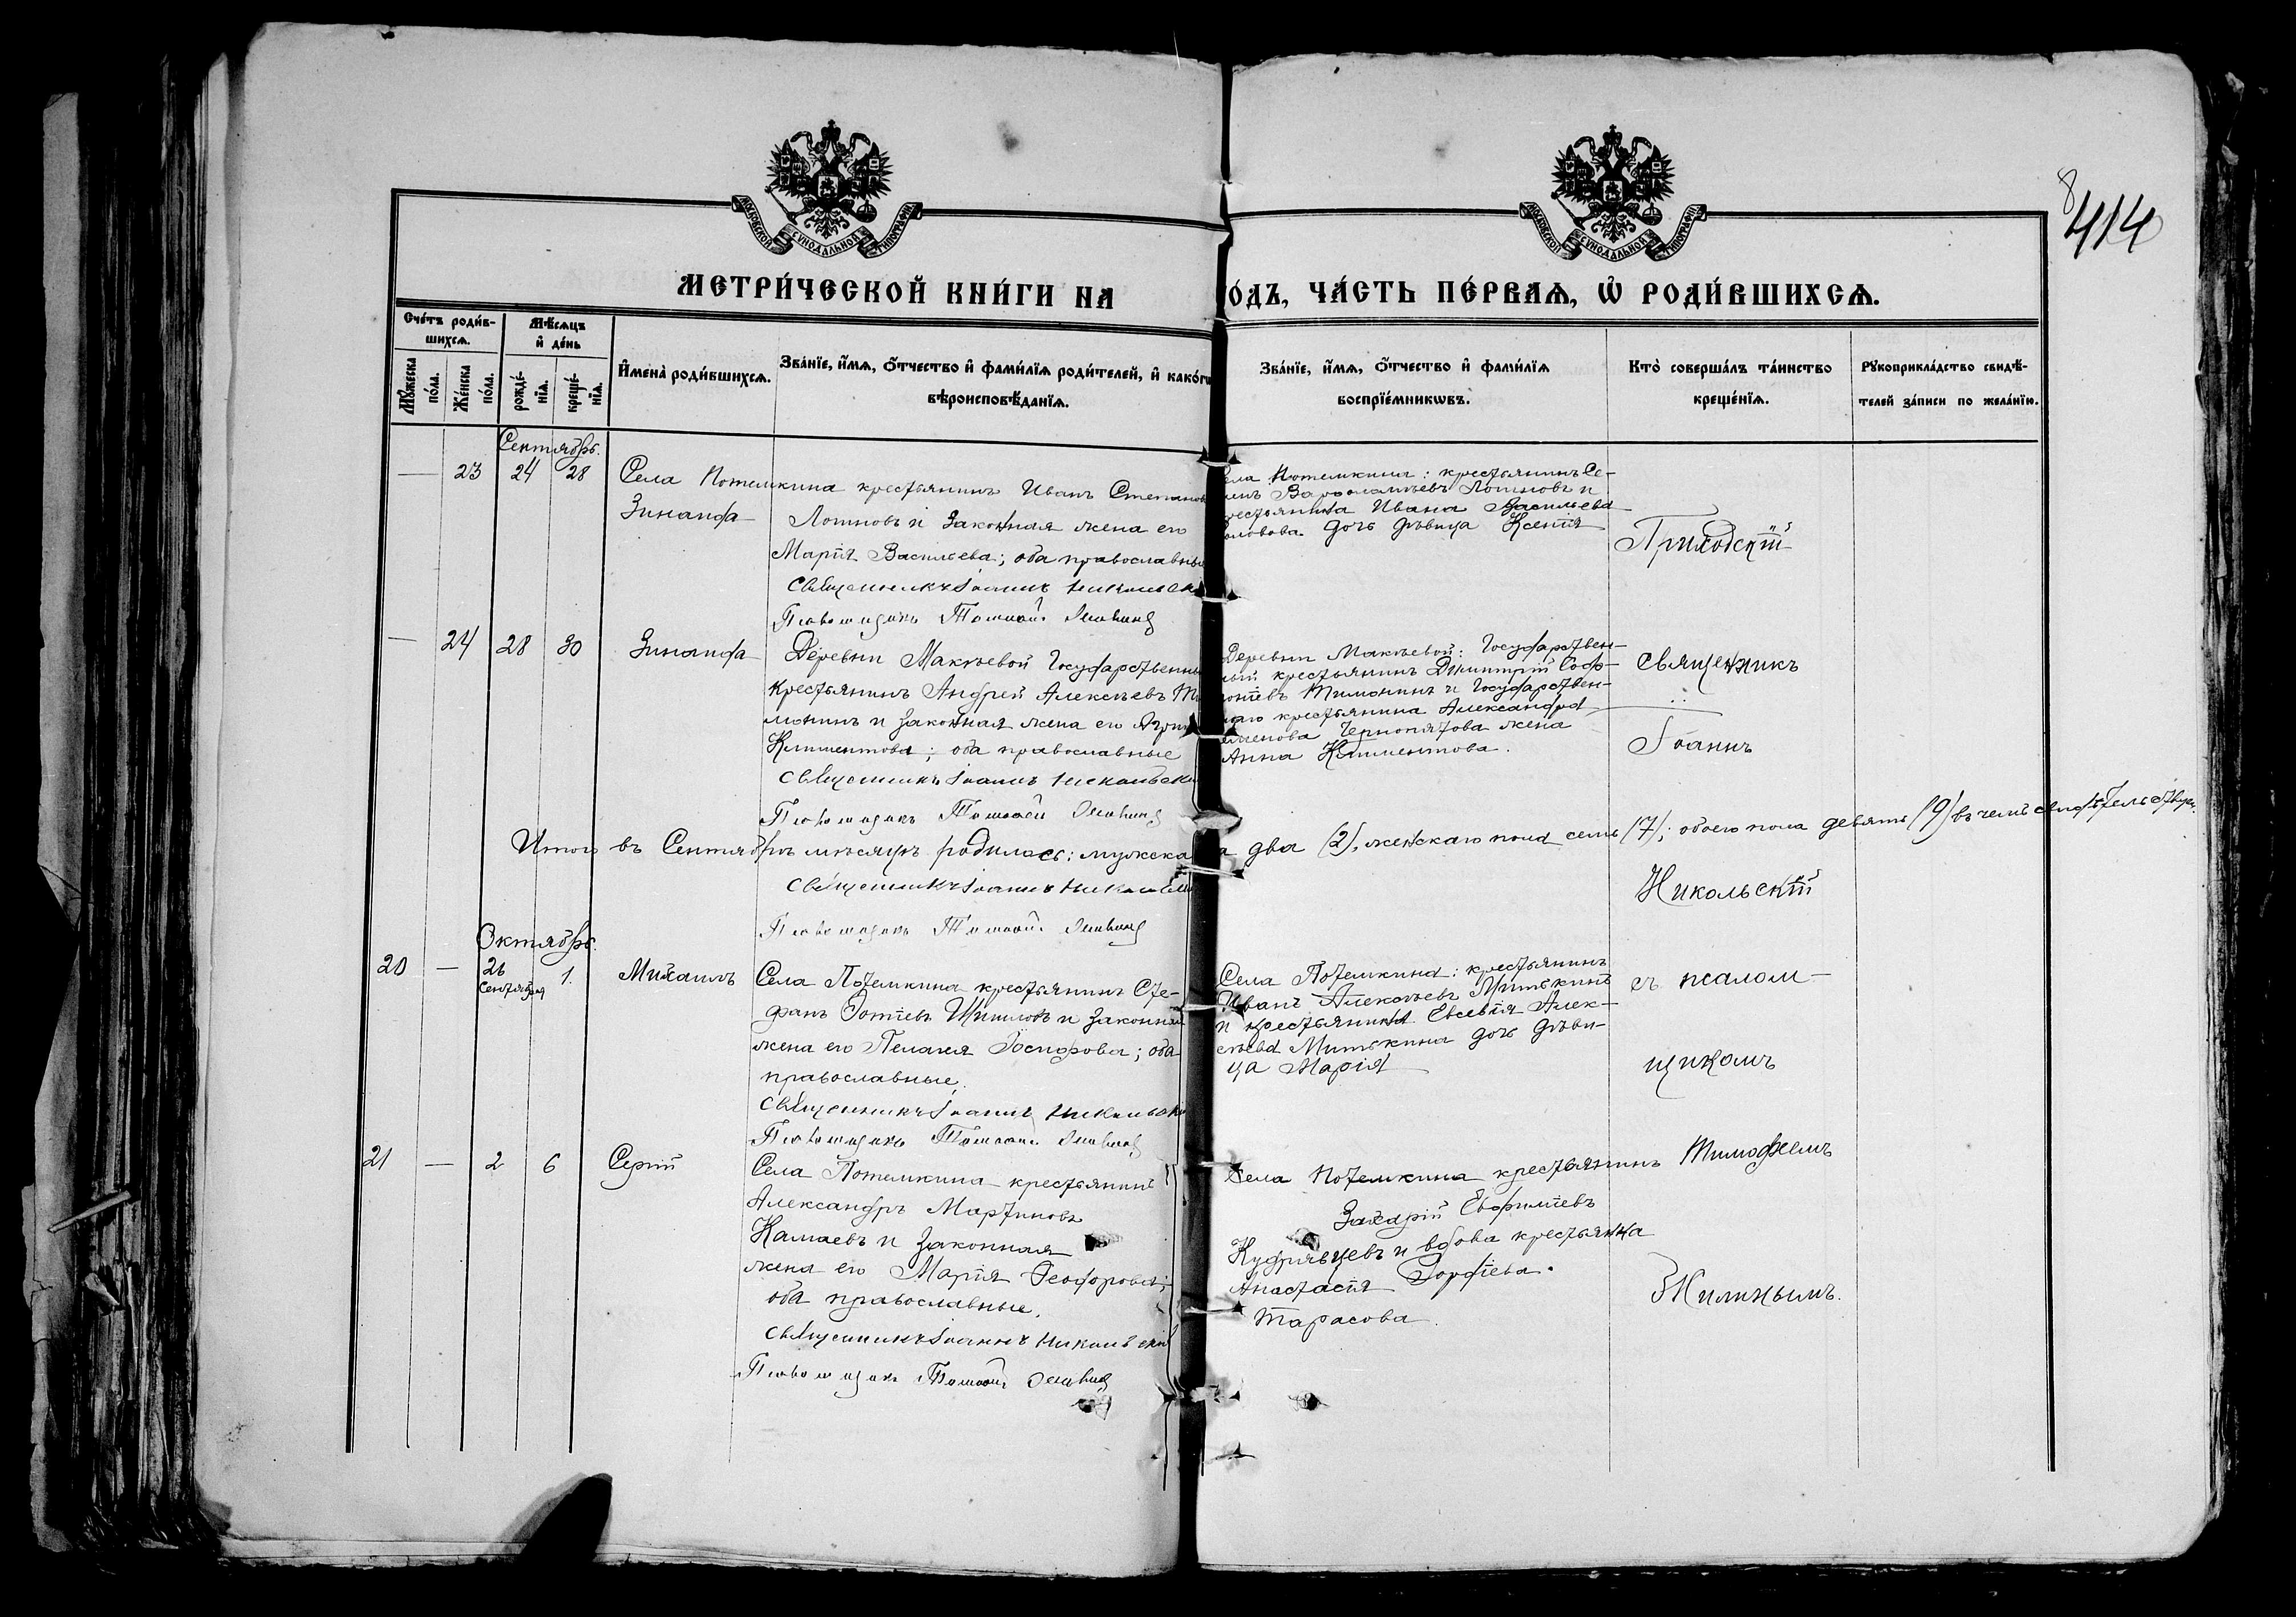 МОСКОВСКОЙ СУНОДАЛЬНОЙ ТИПОГРАФІИ
МОСКОВСКОЙ СУНОДАЛЬНОЙ ТИПОГРАФІИ
8
414
МЕТРИ́ЧЕСКОЙ КНИ́ГИ НА
О́ДЪ, ЧА́СТЬ ПЕ́РВАѦ, Ѡ҆ РОДИ́ВШИХСѦ.
Сче́тъ роди́в-
шихсѧ.
Мѹ́жеска по́ла.
Же́нска по́ла.
Мѣ́сѧцъ
и҆ де́нь
рожде́-
нїѧ.
креще́-
нїѧ.
И҆мена̀ роди́вшихсѧ.
Зва́нїе, и҆́мѧ, ѻ҆́тчество и҆ фами́лїѧ роди́телей, и҆ како́гѡ
вѣроисповѣ́данїѧ.
Зва́нїе, и҆́мѧ, ѻ҆́тчество и҆ фами́лїѧ
воспрїе́мникѡвъ.
Кто̀ соверша́лъ та́инство
креще́нїѧ.
Рѹкоприкла́дство свидѣ́-
телей за́писи по жела́нїю.
Сентябрь.
— 23 24 28
Села Потемкина крестьянинъ Иванъ Степановъ
Зинаида
Лотновъ и законная жена его
Марія Васильева; оба православные
Священникъ Іоаннъ Никольскій
Псаломщикъ
ела Потемкина: крестьянинъ Се-
Варѳоломѣевъ Лотновъ и
рестьянина Ивана Васильева
дочь дѣвица Ксенія
Приходскій
— 24 28 30 Зинаида
Деревни Макѣевой Государственный
крестьянинъ Андрей Алексѣевъ Ти
монинъ и законная жена его
Климентова; оба православные
Священникъ Іоаннъ Никольскій
Псаломщикъ
Деревни Макѣевой: Государствен-
ный крестьянинъ Димитрій Соф-
ѳонѣевъ Тимонинъ и Государствен-
наго крестьянина Александра
Черпопятова жена
Анна Климентова.
Священникъ
Іоаннъ
Итого въ Сентябрѣ мѣсяцѣ родилось: мужска
а два (2), женскаго пола семь (7); обоего пола девять (9) въ чемъ свидѣтельствуемъ
Священникъ Іоаннъ Никольскій
Псаломщикъ
Никольскій
Октябрь.
20 — 26 1. Михаилъ
Сентября
Села Потемкина крестьянинъ Сте-
фанъ Фотіевъ Шишловъ и законная
жена его Пелагея; оба
православные.
Священникъ Іоаннъ Никольскій
Псаломщикъ
Села Потемкина: крестьянинъ
Иванъ Алексѣевъ Митькинъ
и крестьянина Евсевія Алек-
сѣева Митькина дочь дѣви-
ца Марія
съ псалом-
щикомъ
21 — 2 6 Сергій
Села Потемкина крестьянинъ
Александръ Мартиновъ
Камаевъ и законная
жена его Марія Ѳеодорова;
оба православные.
Священникъ Іоаннъ Никольскій
Псаломщикъ
Села Потемкина крестьянинъ
Захарій Евфиміевъ
Кудрявцевъ и вдова крестьянка
Анастасія
Тарасова.
Тимоѳеемъ
Жилинымъ.